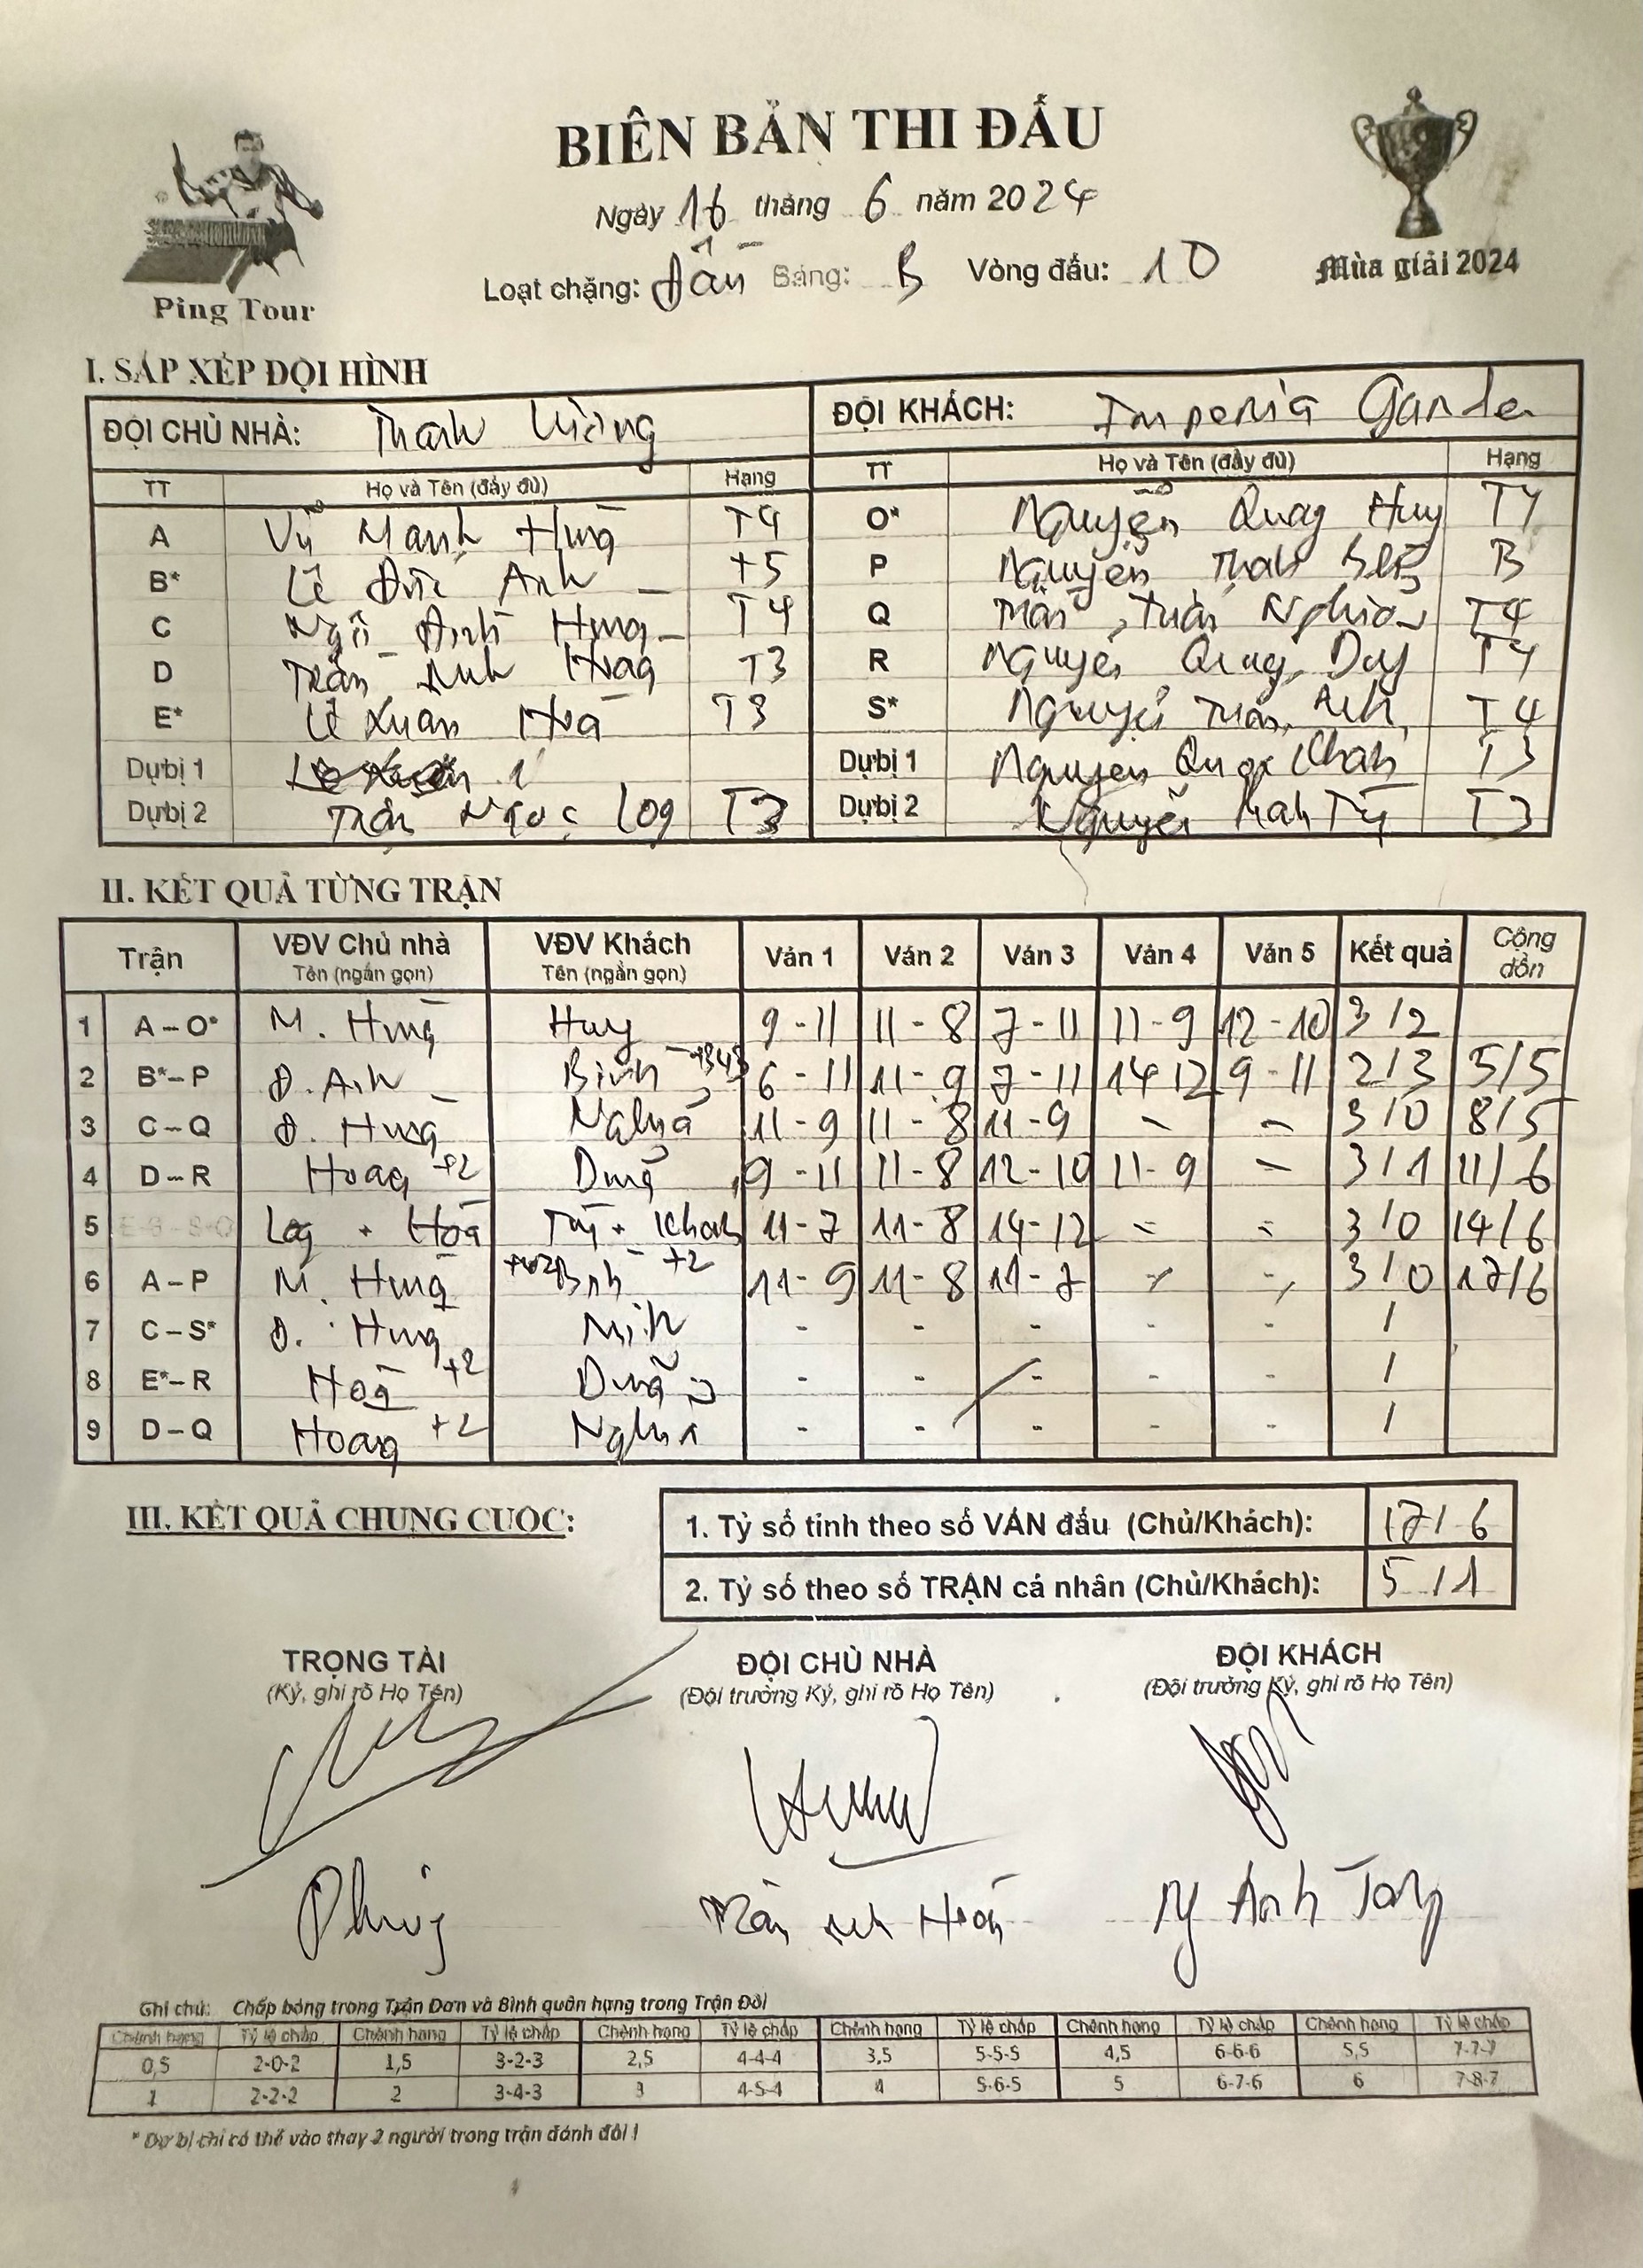 BIÊN BẢN THI ĐẤU
Ngày 16 tháng 6 năm 2024
Loạt chặng: Bảng: B Vòng đấu: 10
Ping Tour
Mùa giải 2024
I. SẮP XẾP ĐỘI HÌNH
ĐỘI CHỦ NHÀ: Thanh ĐỘI KHÁCH: Imperia Garden
TT Họ và Tên (đầy đủ) Hạng TT Họ và Tên (đầy đủ) Hạng
A Vũ Mạnh Hùng T4 O* Nguyễn Quag Huy T4
B* Lê Đức Anh T5 P Nguyễn B
C Ngô Đình Hưng T4 Q Trần Tuấn Nghĩa T4
D Trần Anh Hoag T3 R Nguyễn Quag T4
E* Lê Xuân Hoà T3 S* Nguyễn Tuấn Anh T4
Dự bị 1 Dự bị 1 Nguyễn Quốc Khah T3
Dự bị 2 Trần Ngọc Log T3 Dự bị 2 Nguyễn T3
II. KẾT QUẢ TỪNG TRẬN
Trận VĐV Chủ nhà VĐV Khách Ván 1 Ván 2 Ván 3 Ván 4 Ván 5 Kết quả Cộng dồn
Tên (ngắn gọn) Tên (ngắn gọn)
1 A – O* M. Hùng Huy 9 - 11 11 - 8 7 - 11 11 - 9 12 - 10 3 / 2
2 B* – P Đ. Anh Bình 6 - 11 11 - 9 7 - 11 14 - 12 9 - 11 2 / 3 5 / 5
3 C – Q Đ. Hưng Nghĩa 11 - 9 11 - 8 11 - 9 - - 3 / 0 8 / 5
4 D – R Hoag +2 Dũng 9 - 11 11 - 8 12 - 10 11 - 9 - 3 / 1 11 / 6
5 Log + Hoà + Khah 11 - 7 11 - 8 14 - 12 - - 3 / 0 14 / 6
6 A – P M. Hùng Bình +2 11 - 9 11 - 8 11 - 7 - - 3 / 0 17 / 6
7 C – S* Đ. Hưng Minh - - - - - /
8 E* – R Hoà +2 Dũng - - - - - /
9 D – Q Hoang +2 Nghĩa - - - - - /
III. KẾT QUẢ CHUNG CUỘC:
1. Tỷ số tính theo số VÁN đấu (Chủ/Khách): 17 / 6
2. Tỷ số theo số TRẬN cá nhân (Chủ/Khách): 5 / 1
TRỌNG TÀI ĐỘI CHỦ NHÀ ĐỘI KHÁCH
(Ký, ghi rõ Họ Tên) (Đội trưởng Ký, ghi rõ Họ Tên) (Đội trưởng Ký, ghi rõ Họ Tên)
Trần Anh Hoàg Anh
Ghi chú: Chấp bóng trong Trận Đơn và Bình quân hạng trong Trận Đôi
Chênh hạng Tỷ lệ chấp Chênh hạng Tỷ lệ chấp Chênh hạng Tỷ lệ chấp Chênh hạng Tỷ lệ chấp Chênh hạng Tỷ lệ chấp Chênh hạng Tỷ lệ chấp
0,5 2-0-2 1,5 3-2-3 2,5 4-4-4 3,5 5-5-5 4,5 6-6-6 5,5 7-7-7
1 2-2-2 2 3-4-3 3 4-5-4 4 5-6-5 5 6-7-6 6 7-8-7
* Dự bị chỉ có thể vào thay 2 người trong trận đánh đôi !